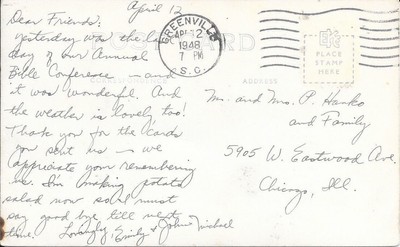 April 12
Dear Friends:
Yesterday was the last
day of our Annual
Bible Conference — and
it was wonderful. And
the weather is lovely too!
Thank you for the cards
you sent us — we
appreciate your remembering
us. I'm making potato
salad now so I must
say good bye till next
time. Lovingly, Emily & John Michael
POST CARD
ADDRESS
GREENVILLE
APR 12
1948
7 PM
S.C.
EKC
PLACE
STAMP
HERE
Mr. and Mrs. P. Hanko
and Family
5905 W. Eastwood Ave.
Chicago, Ill.